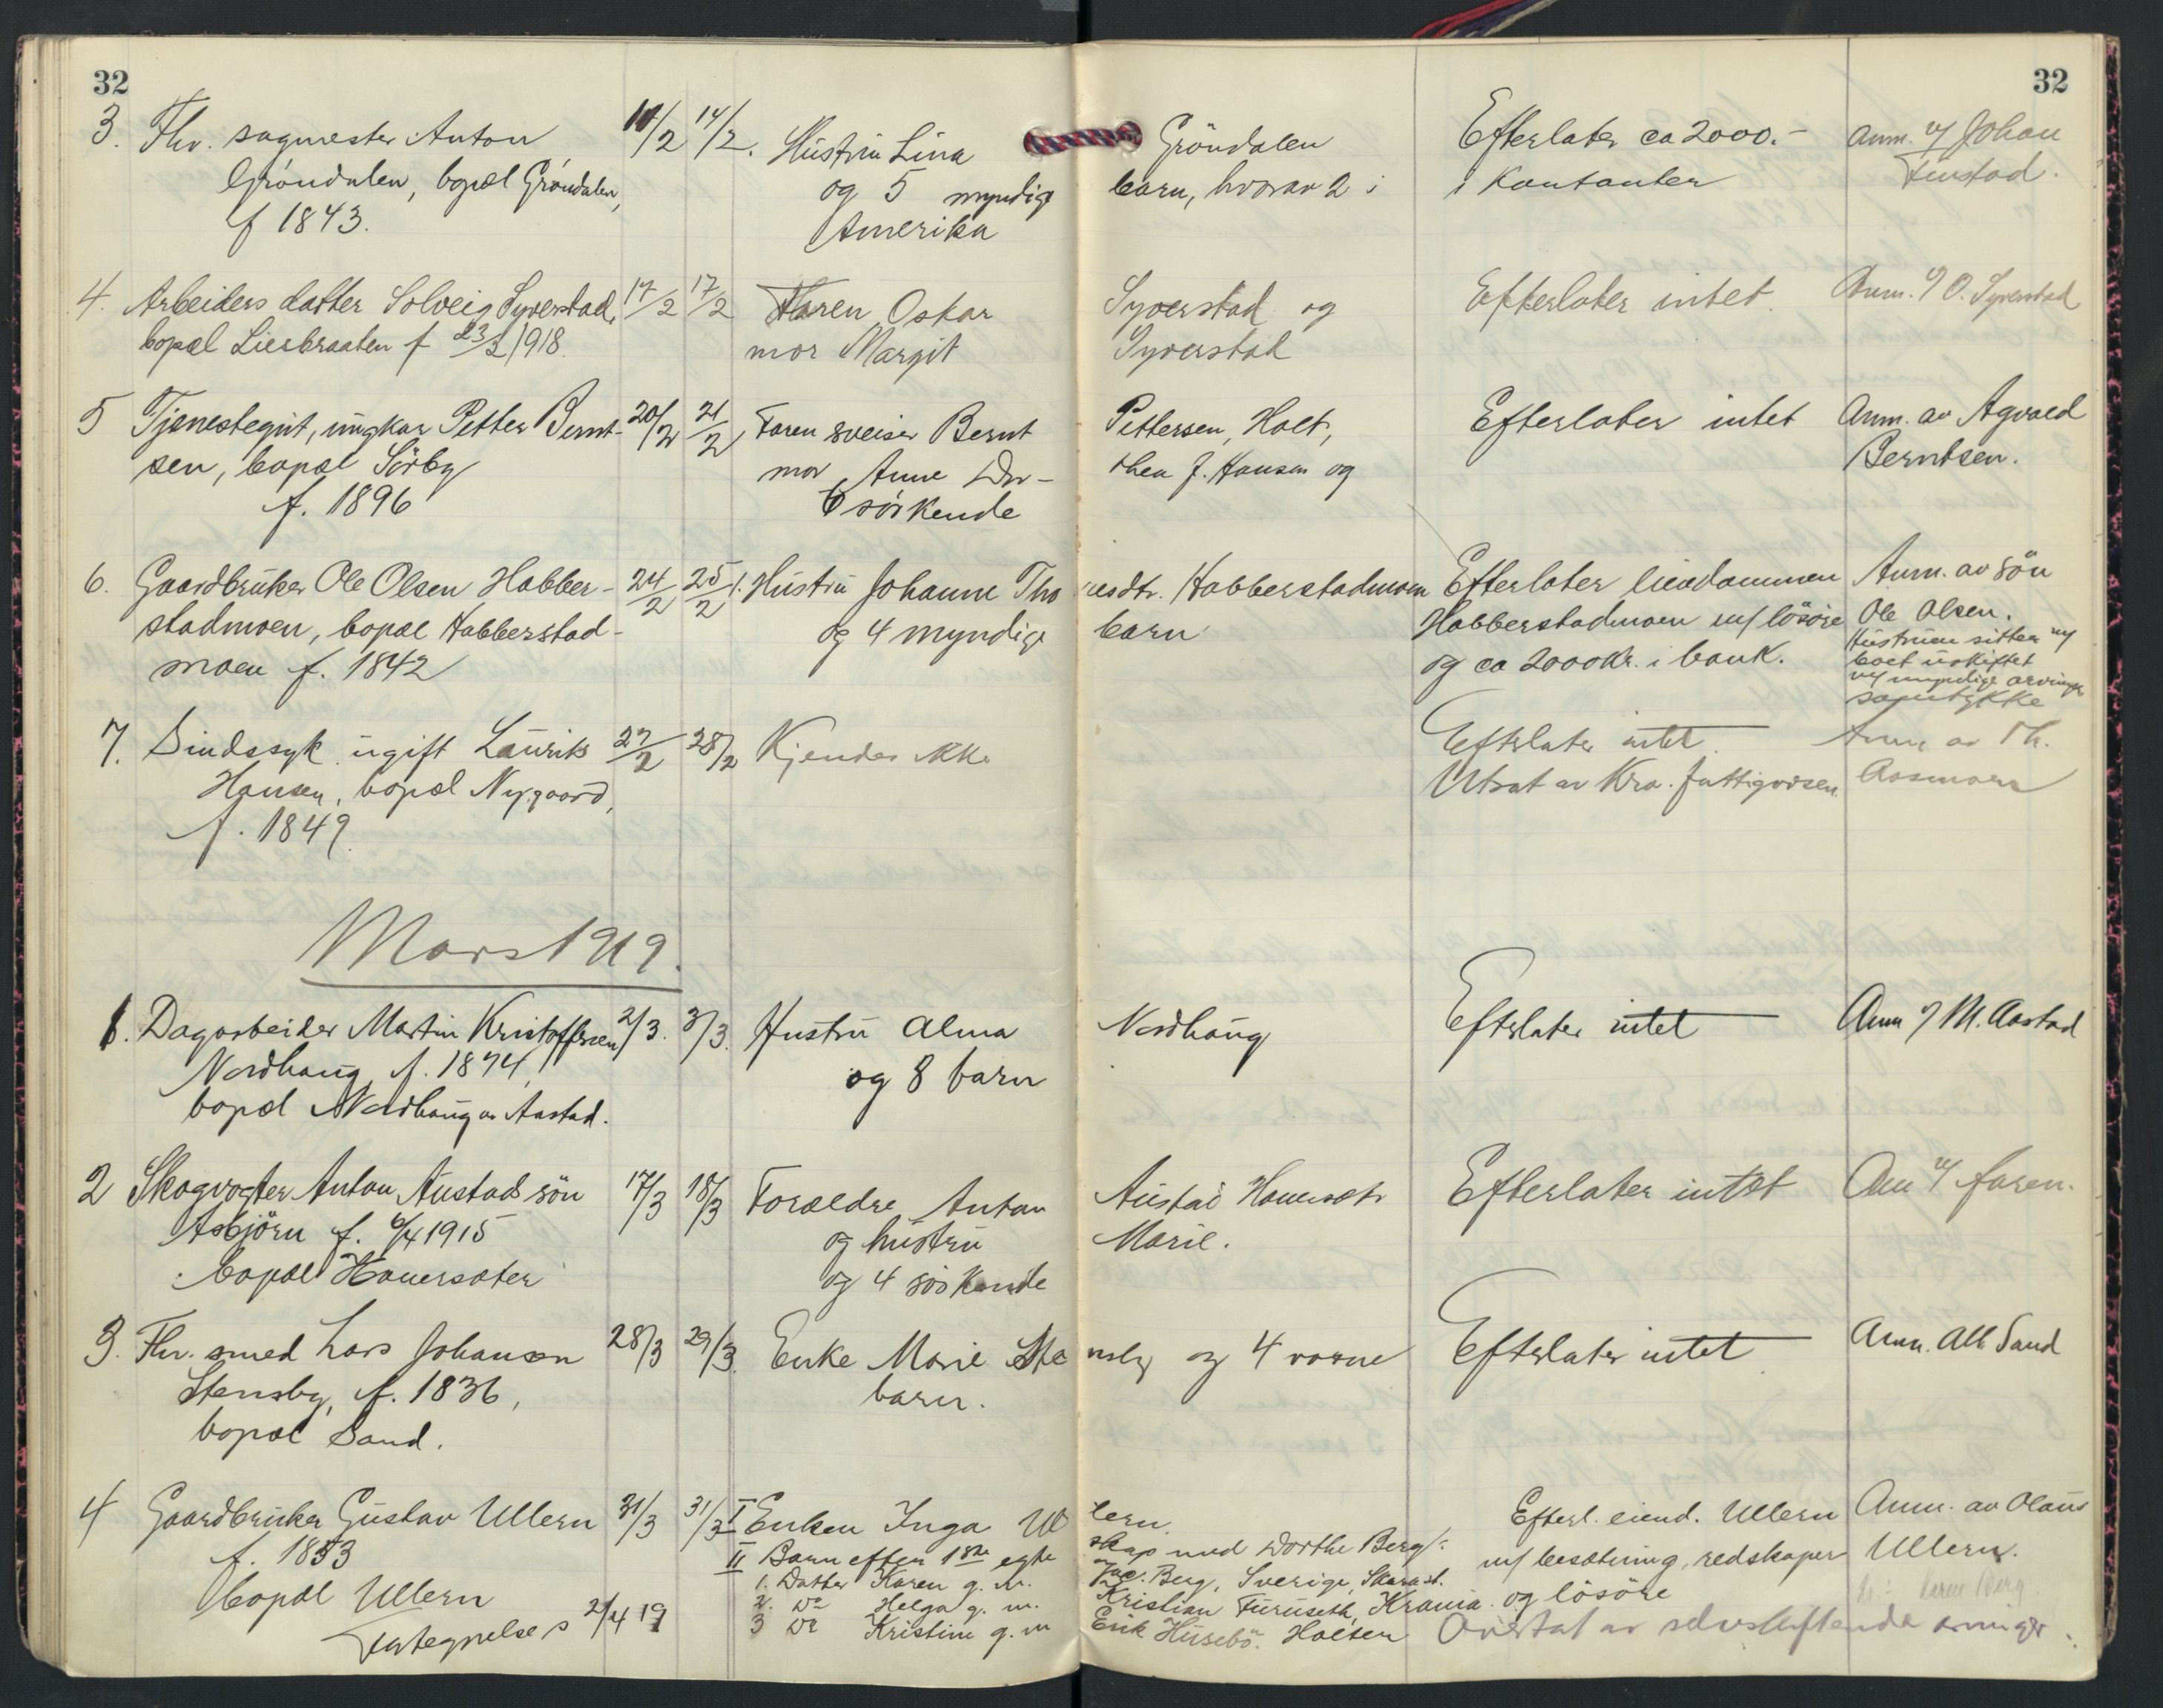 32
32
3. Fhv. sagmester Anton 10/2 14/2. Hustru Lina Gröndalen Efterlater ca 2000.- Anm. v/ Johan
Gröndalen, bopæl Gröndalen, og 5 myndige barn, hvorav 2 i i Kontanter Finstad.
f 1843. Amerika
4. Arbeiders datter Solveig Syverstad, 17/2 17/2 Faren Oskar Syverstad og Efterlater intet. Anm. v/ O. Syverstad
bopæl Liesbraaten f 23/2 1918. mor Margit Syverstad
5 Tjenestegut, ungkar Petter Bernt- 20/2 21/2 Faren sveiser Bernt Pettersen, Holt, Efterlater intet Anm. av Agvald
sen, bopæl Sörby mor Anne Dor- thea J. Hansen og Berntsen.
f. 1896 6 söskende
6. Gaardbruker Ole Olsen Habber- 24/2 25/2 1. Hustru Johanne Tho resdtr. Habberstadmoen Efterlater eiendommen Anm. av sön
stadmoen, bopæl Habberstad- og 4 myndige barn Habberstadmoen m/ lösöre Ole Olsen.
moen f. 1842 og ca 2000 kr. i bank. Hustruen sitter m/
boet uskiftet
m/ myndige arvinger
samtykke
7. Sindssyk ugift Laurits 27/2 28/2 Kjendes ikke Efterlater intet. Anm av Th.
Hansen, bopæl Nygaard, Utsat av Kra. fattigvæsen. Aasmoen
f. 1849.
Mars 1919.
1. Dagarbeider Martin Kristoffersen 2/3. 3/3. Hustru Alma Nordhaug Efterlater intet Anm v/ M. Aastad
Nordhaug, f. 1874, og 8 barn
bopæl Nordhaug av Aastad.
2 Skogvogter Anton Austads sön 17/3 18/3 Forældre Anton Austad Hauersæter Efterlater intet Anm v/ faren.
Asbjörn f. 6/4 1915 og hustru Marie.
bopæl Hauersæter og 4 söskende
3. Fhv. smed Lars Johansen 28/3 29/3. Enke Marie Ste nsby og 4 voxne Efterlater intet Anm. Alb Sand
Stensby, f. 1836, barn.
bopæl Sand.
4 Gaardbruker Gustav Ullern 31/3 31/3 I Enken Inga Ul lern. Efterl. eiend. Ullern Anm. av Olaus
f. 1853 II Barn efter 1ste egte skap med Dorthe Berg: m/ besætning, redskaper Ullern.
bopæl Ullern 1. Datter Karen g. m. Jac. Berg, Sverige, Skarast. og lösöre
2. Do Helga g. m. Kristian Furuseth, Krania.
Fortegnelse s 2/4 19 3 Do Kristine g. m Erik Husebö. Holter Overtat av selvskiftende arvinger.